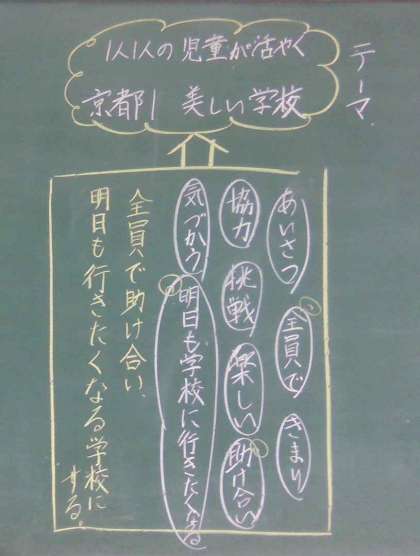 テーマ
1人1人の児童が活やく
京都1 美しい学校
あいさつ 全員で きまり
協力 挑戦 楽しい 助け合い
気づかう 明日も学校に行きたくなる
全員で助け合い、
明日も行きたくなる学校に
する。